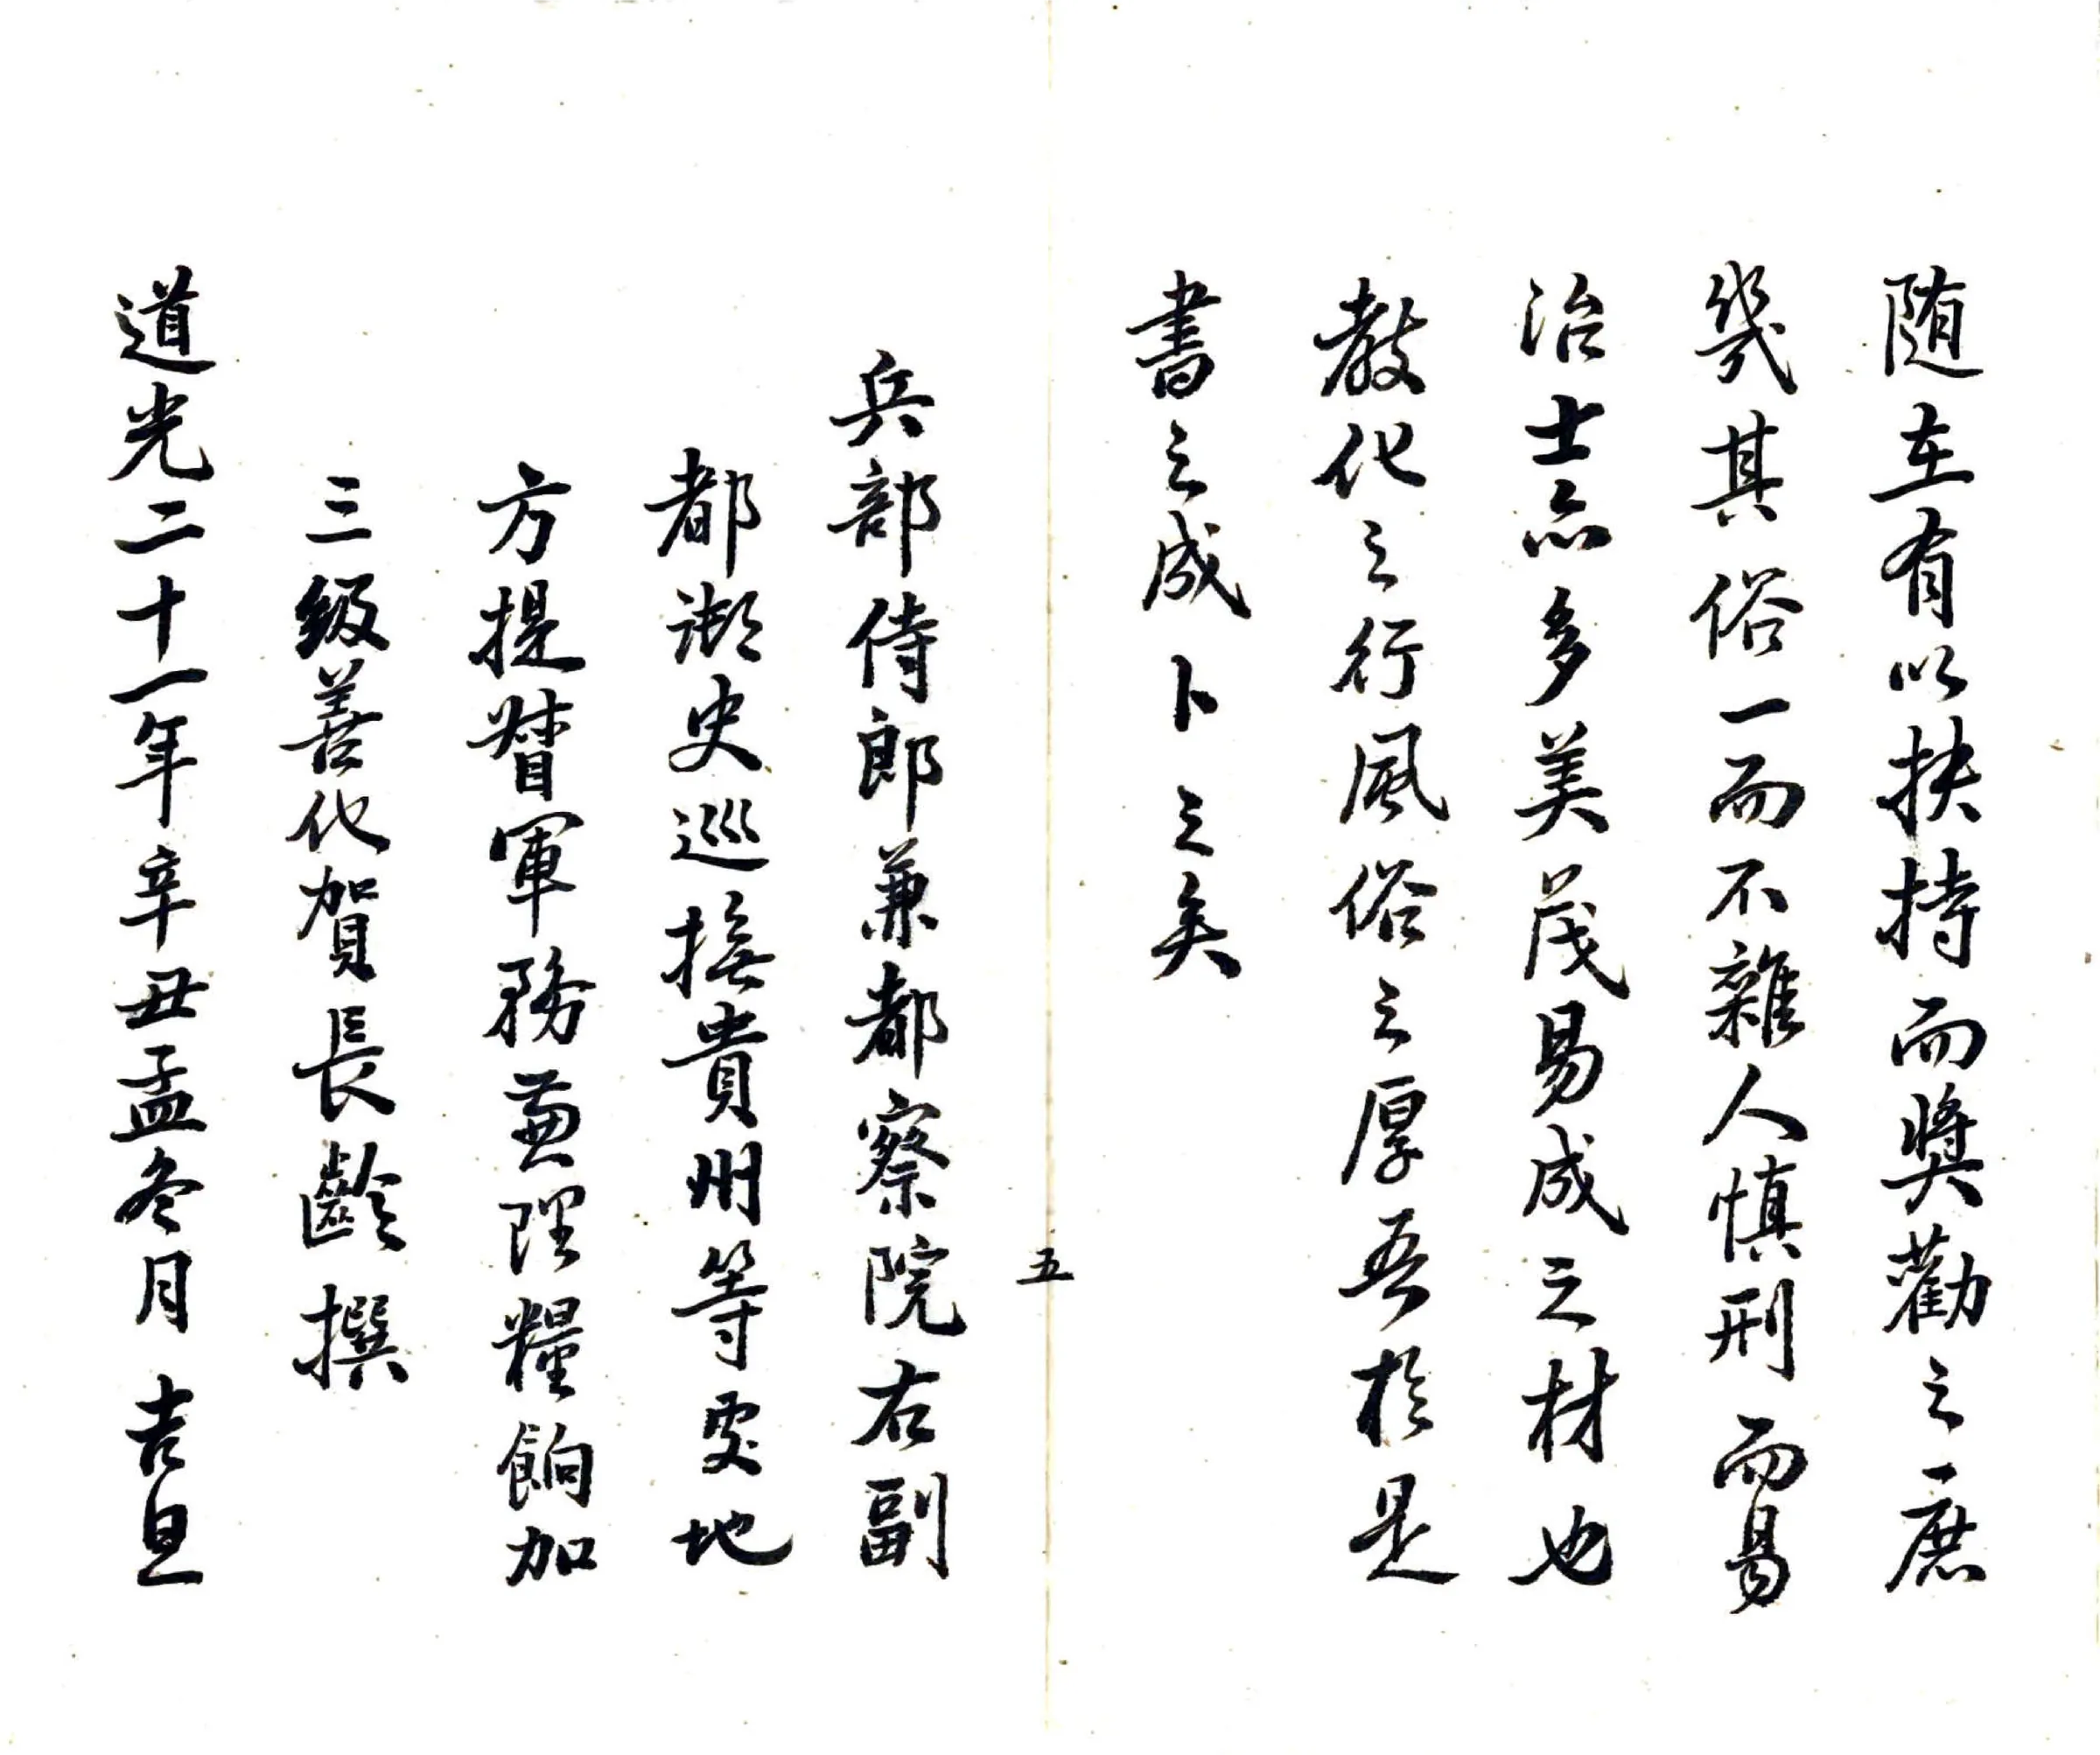 随在有以扶持而奬勸之庶
幾其俗一而不雜人慎刑而易
治士亦多美茂易成之材也
教化之行風俗之厚吾於是
書之成卜之矣
五
兵部侍郎兼都察院右副
都御史巡撫貴州等處地
方提督軍務兼理糧餉加
三級善化賀長齡撰
道光二十一年辛丑孟冬月吉旦